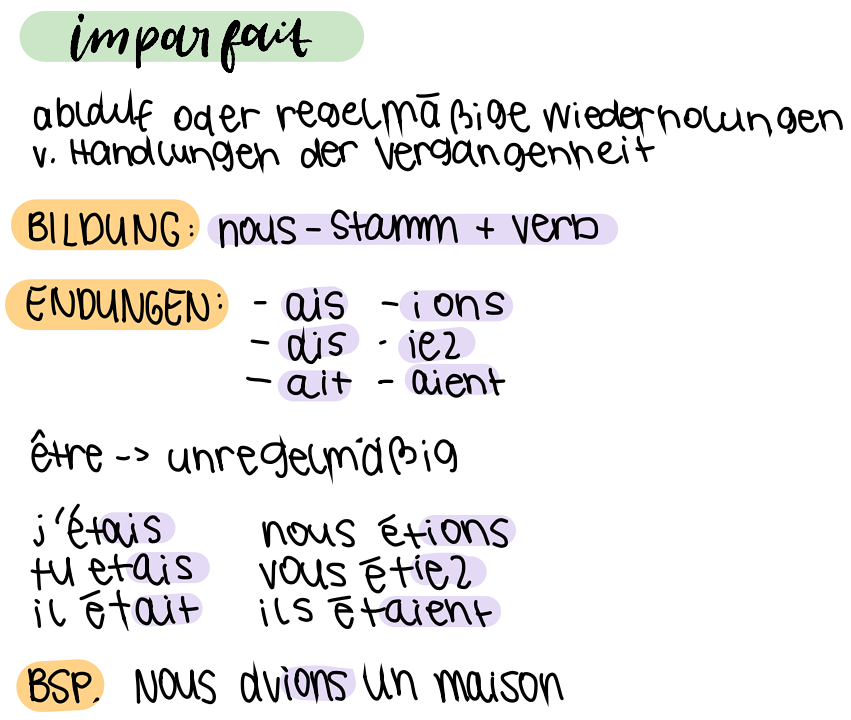 imparfait
ablauf oder regelmäßige Wiederholungen
v. Handlungen der Vergangenheit
BILDUNG: nous-Stamm + verb
ENDUNGEN: - ais - ions
- ais - iez
- ait - aient
être -> unregelmäßig
j'étais nous étions
tu etais vous étiez
il était ils étaient
BSP. Nous avions un maison